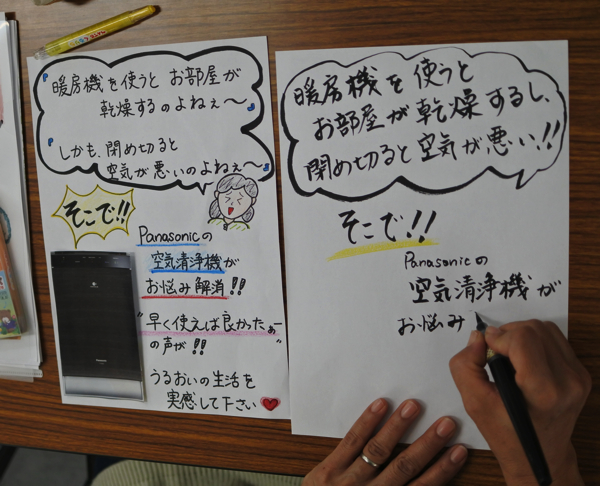 暖房機を使うと お部屋が
乾燥するのよねぇ〜
しかも、閉め切ると
空気が悪いのよねぇ〜
そこで!!
Panasonicの
空気清浄機が
お悩み解消!!
"早く使えば良かったぁー"
の声が!!
うるおいの生活を
実感して下さい
Panasonic
暖房機を使うと
お部屋が乾燥するし、
閉め切ると空気が悪い!!
そこで!!
Panasonicの
空気清浄機が
お悩み